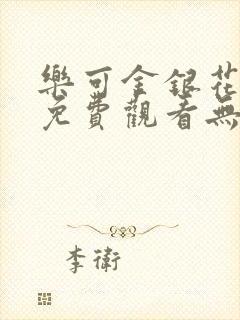 樂可金銀花
免費觀看無
李衛